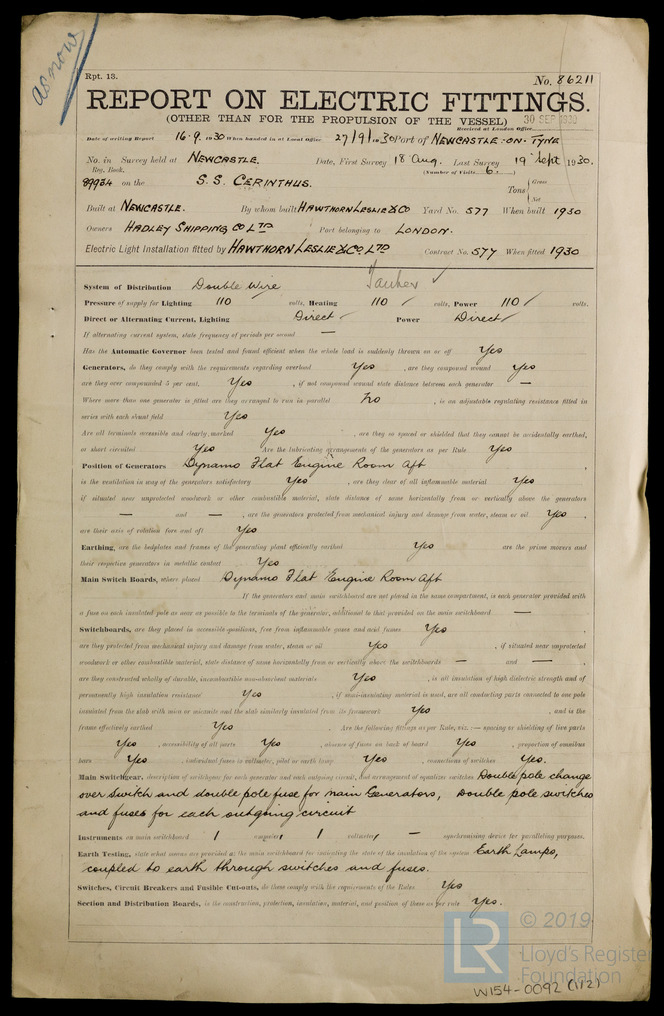 as now
Rpt. 13.
No. 86211
REPORT ON ELECTRIC FITTINGS.
(OTHER THAN FOR THE PROPULSION OF THE VESSEL)
30 SEP 1930
Received at London Office
Date of writing Report 16.9.1930 When handed in at Local Office 27/9/1930 Port of NEWCASTLE-ON-TYNE
No. in Survey held at NEWCASTLE. Date, First Survey 18 Aug. Last Survey 19 Sept 1930.
Reg. Book. (Number of Visits 6.)
89934 on the S.S. CERINTHUS. Tons { Gross
Net
Built at NEWCASTLE. By whom built HAWTHORN LESLIE & CO Yard No. 577 When built 1930
Owners HADLEY SHIPPING CO LTD Port belonging to LONDON.
Electric Light Installation fitted by HAWTHORN LESLIE & CO. LTD Contract No. 577 When fitted 1930
System of Distribution Double Wire Tanker ✓
Pressure of supply for Lighting 110 volts, Heating 110 ✓ volts, Power 110 ✓ volts.
Direct or Alternating Current, Lighting Direct ✓ Power Direct ✓
If alternating current system, state frequency of periods per second —
Has the Automatic Governor been tested and found efficient when the whole load is suddenly thrown on or off Yes
Generators, do they comply with the requirements regarding overload Yes , are they compound wound Yes
are they over compounded 5 per cent. Yes , if not compound wound state distance between each generator —
Where more than one generator is fitted are they arranged to run in parallel No , is an adjustable regulating resistance fitted in
series with each shunt field Yes
Are all terminals accessible and clearly marked Yes , are they so spaced or shielded that they cannot be accidentally earthed,
or short circuited Yes Are the lubricating arrangements of the generators as per Rule Yes
Position of Generators Dynamo Flat Engine Room Aft
is the ventilation in way of the generators satisfactory Yes , are they clear of all inflammable material Yes
if situated near unprotected woodwork or other combustible material, state distance of same horizontally from or vertically above the generators
— and — , are the generators protected from mechanical injury and damage from water, steam or oil Yes ,
are their axis of rotation fore and aft Yes
Earthing, are the bedplates and frames of the generating plant efficiently earthed Yes are the prime movers and
their respective generators in metallic contact Yes
Main Switch Boards, where placed Dynamo Flat Engine Room Aft
If the generators and main switchboard are not placed in the same compartment, is each generator provided with
a fuse on each insulated pole as near as possible to the terminals of the generator, additional to that provided on the main switchboard —
Switchboards, are they placed in accessible positions, free from inflammable gases and acid fumes Yes ,
are they protected from mechanical injury and damage from water, steam or oil Yes , if situated near unprotected
woodwork or other combustible material, state distance of same horizontally from or vertically above the switchboards — and — ,
are they constructed wholly of durable, incombustible non-absorbent materials Yes , is all insulation of high dielectric strength and of
permanently high insulation resistance Yes , if semi-insulating material is used, are all conducting parts connected to one pole
insulated from the slab with mica or micanite and the slab similarly insulated from its framework Yes , and is the
frame effectively earthed Yes . Are the following fittings as per Rule, viz.:— spacing or shielding of live parts
Yes , accessibility of all parts Yes , absence of fuses on back of board Yes , proportion of omnibus
bars Yes , individual fuses to voltmeter, pilot or earth lamp Yes , connections of switches Yes.
Main Switchgear, description of switchgear for each generator and each outgoing circuit, and arrangement of equalizer switches Double pole change
over switch and double pole fuse for main Generators, Double pole switches
and fuses for each outgoing circuit
Instruments on main switchboard 1 ammeters 1 voltmeters — synchronising device for paralleling purposes.
Earth Testing, state what means are provided at the main switchboard for indicating the state of the insulation of the system Earth Lamps,
coupled to earth through switches and fuses.
Switches, Circuit Breakers and Fusible Cut-outs, do these comply with the requirements of the Rules Yes
Section and Distribution Boards, is the construction, protection, insulation, material, and position of these as per rule Yes.
LR © 2019
Lloyd's Register
Foundation
W154-0092 (1/2)